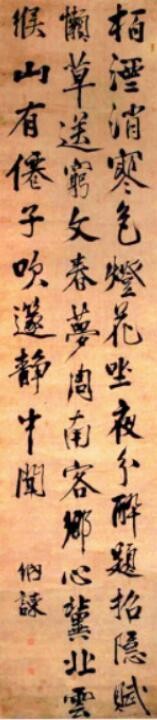 栢酒消寒色燈花坐夜分醉題招隱賦
懶草送窮文春夢周南客鄉心冀北雲
緱山有僊子吹篴靜中聞